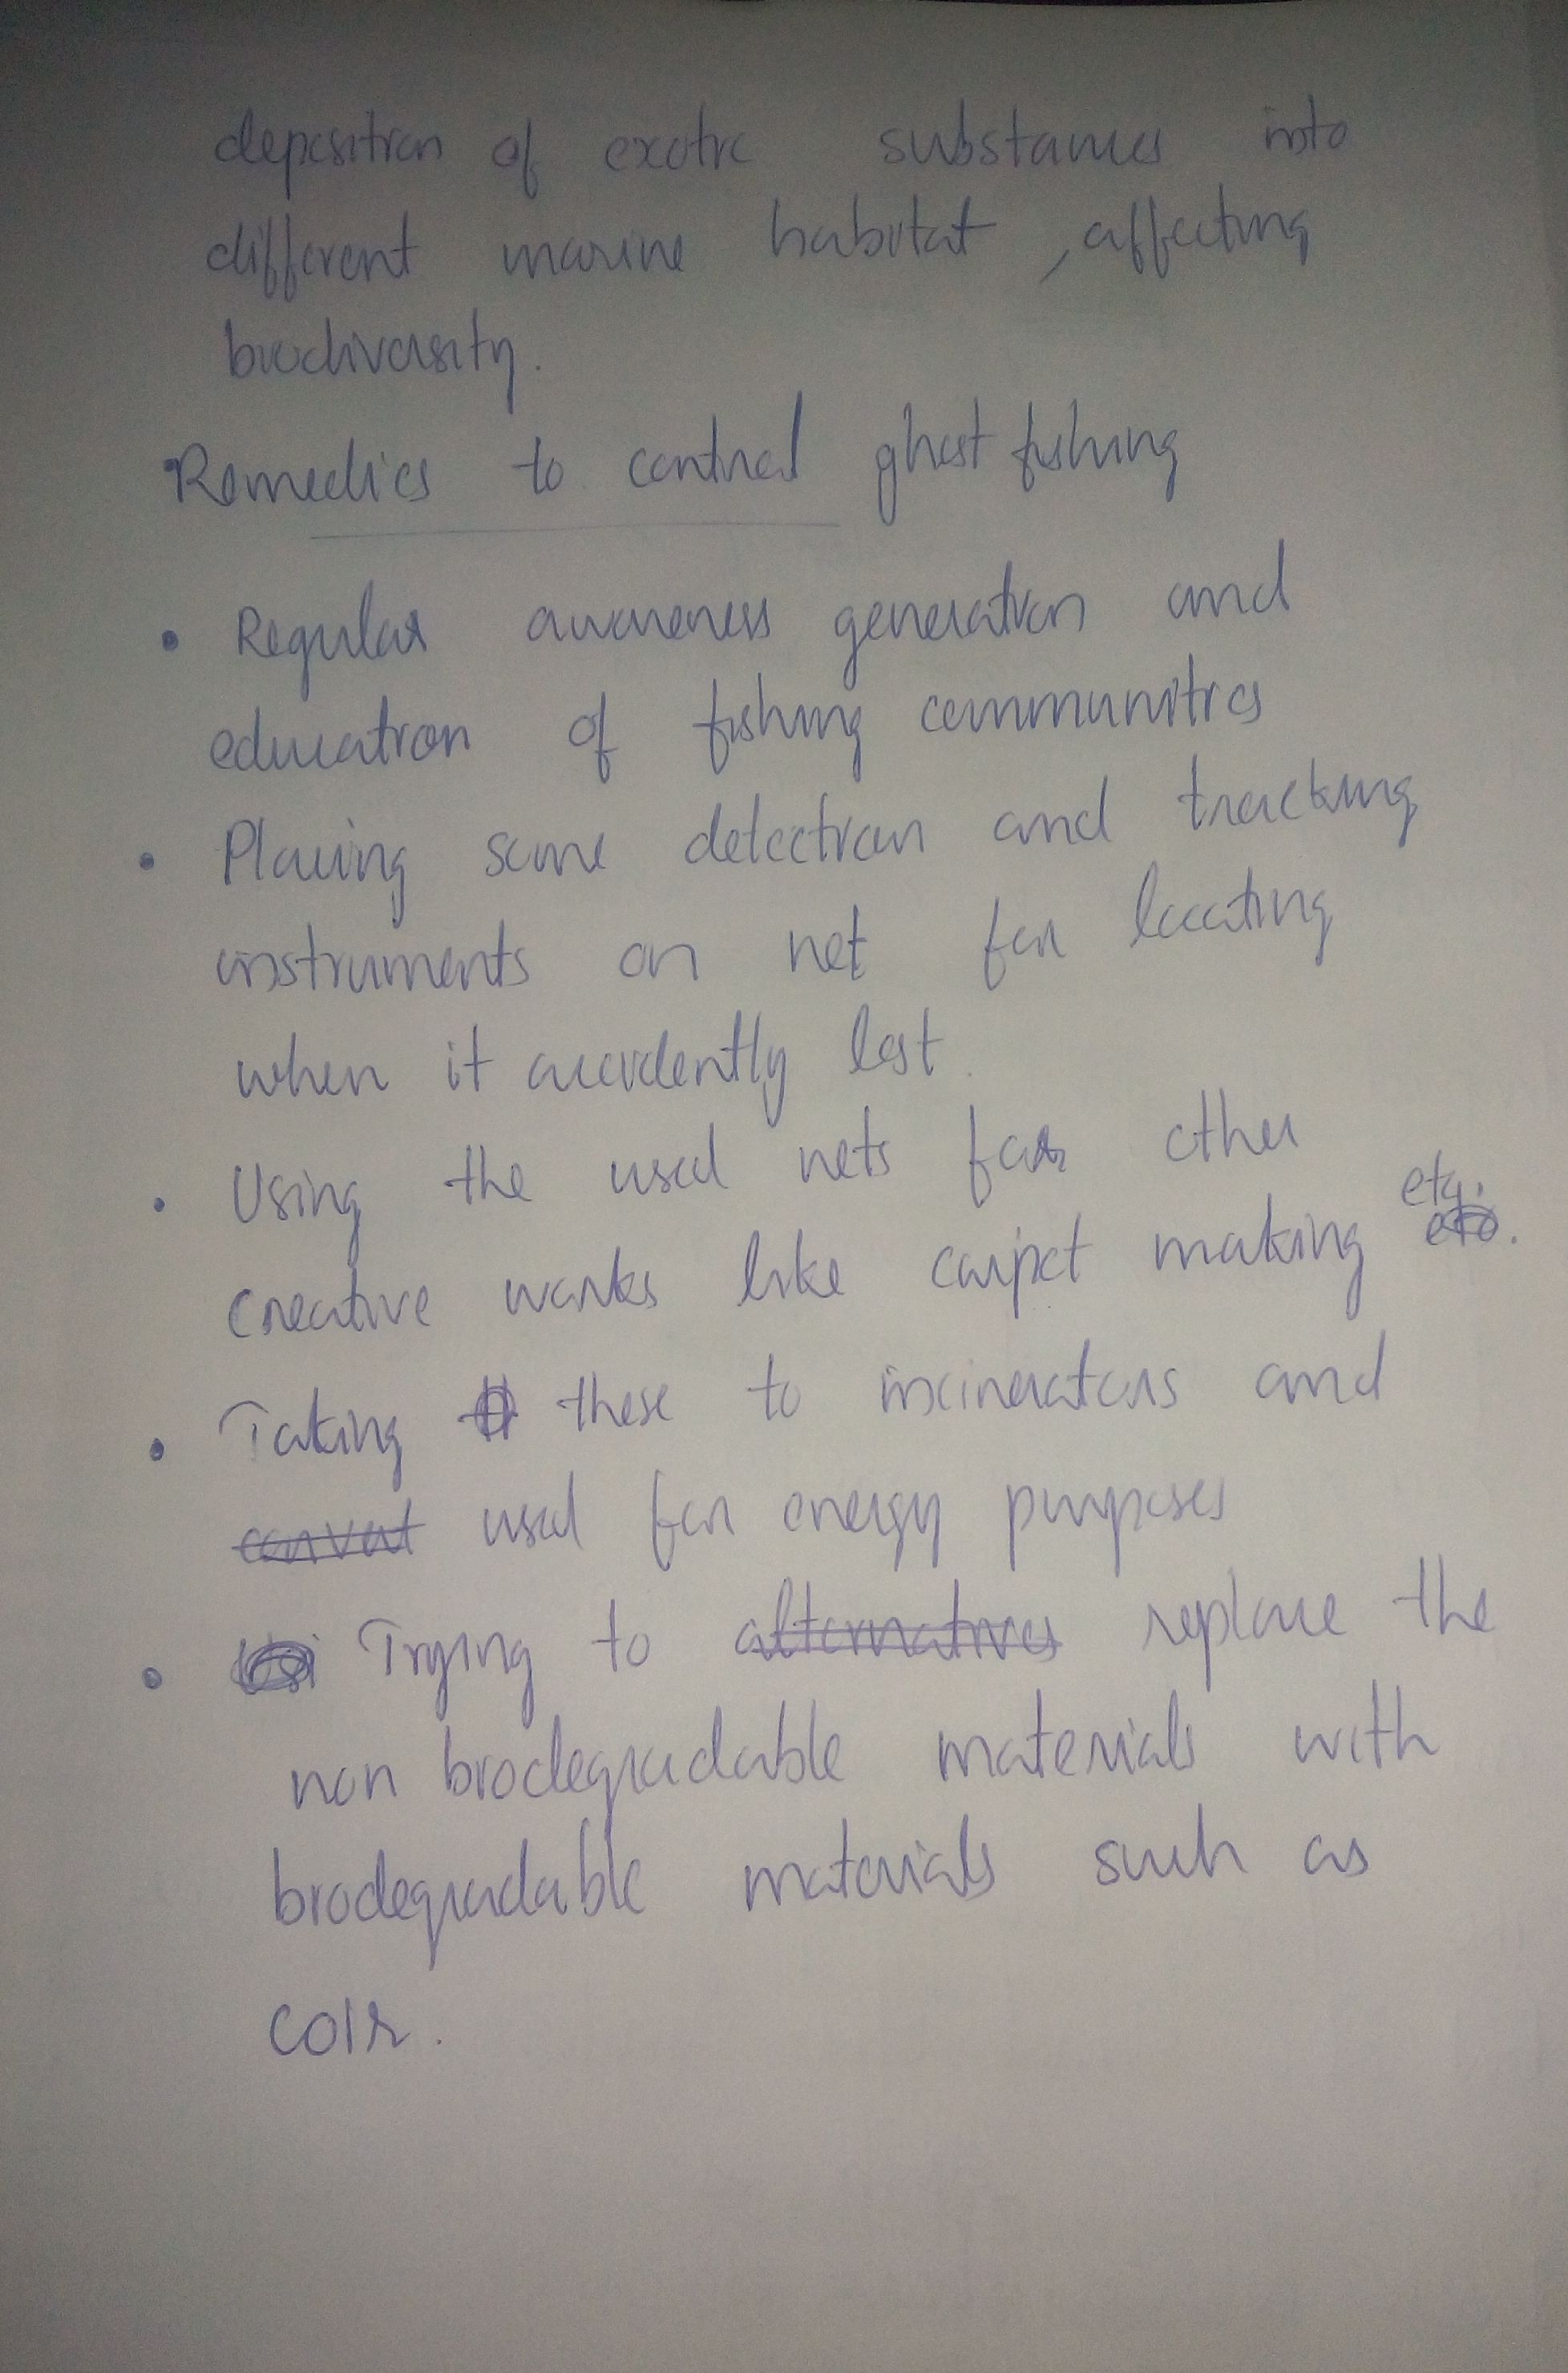 deposition of exotic substances into
different marine habitat, affecting
biodiversity.
Remedies to control ghost fishing
• Regular awareness generation and
education of fishing communities
• Placing some detection and tracking
instruments on net for locating
when it accidently lost.
• Using the used nets for other
creative works like carpet making etc.
• Taking these to incinerators and
convert used for energy purposes
• Trying to alternatives replace the
non biodegradable materials with
biodegradable materials such as
coir.